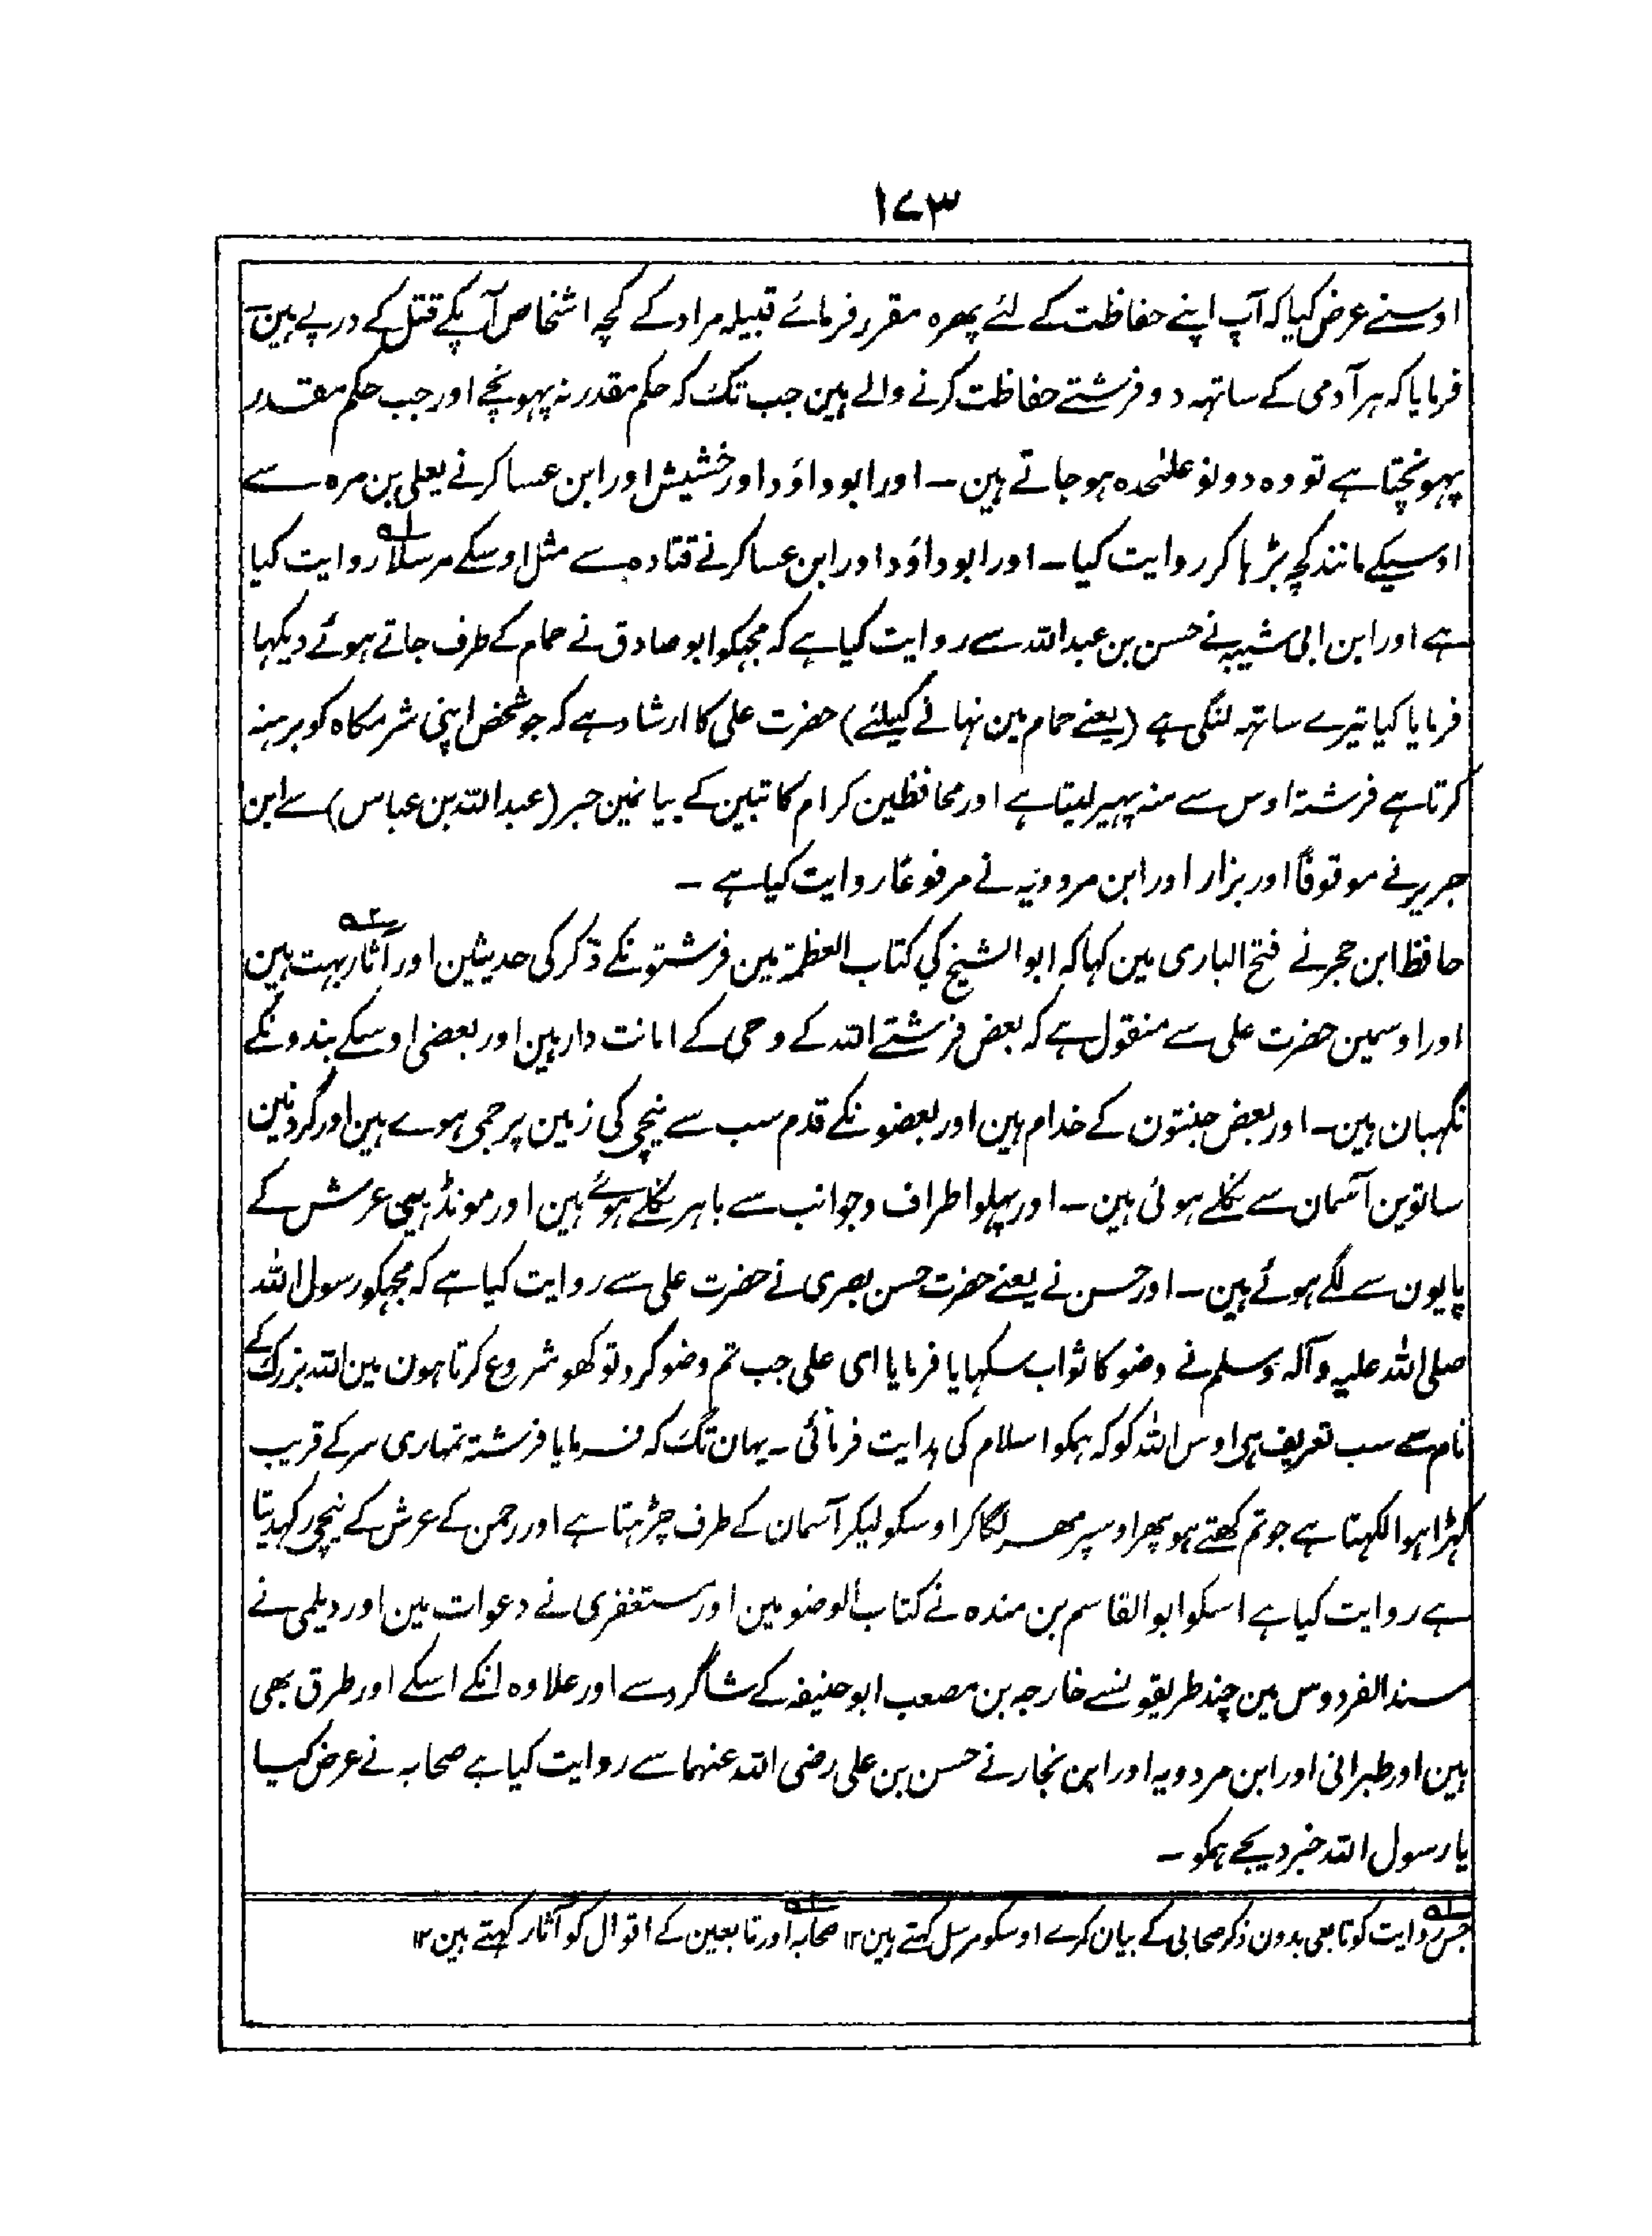 ۱۷۳
اوسنے عرض کیا کہ آپ اپنے حفاظت کے لئے پھرہ مقرر فرمائے قبیلہ مراد کے کچہ اشخاص آپکے قتل کے درپے ہین
فرمایا کہ ہر آدمی کے ساتہہ دو فرشتے حفاظت کرنے والے ہین جب تک کہ حکم مقدر نہ پہونچے اور جب حکم مقدر
پہونچتا ہے تو وہ دونو علٰحدہ ہو جاتے ہین ۔ اور ابوداؤد اور خشیش اور ابن عساکر نے یعلی بن مرہ سے
اوسیکے مانند کچہ بڑہا کر روایت کیا ۔ اور ابوداؤد اور ابن عساکر نے قتادہ سے مثل اوسکے مرسلاً ۱؎ روایت کیا
ہے اور ابن ابی شیبہ نے حسن بن عبداللہ سے روایت کیا ہے کہ مجہکو ابو صادق نے حمام کے طرف جاتے ہوئے دیکہا
فرمایا کیا تیرے ساتہہ لنگی ہے (یعنے حمام مین نہانے کیلئے) حضرت علی کا ارشاد ہے کہ جو شخص اپنی شرمگاہ کو برہنہ
کرتا ہے فرشتہ اوس سے منہ پہیر لیتا ہے اور محافظین کرام کاتبین کے بیانمین حبر (عبداللہ بن عباس) سے ابن
جریر نے موقوفًا اور بزار اور ابن مردویہ نے مرفوعًا روایت کیا ہے ۔
حافظ ابن حجر نے فتح الباری مین کہا کہ ابوالشیخ کی کتاب العظمۃ مین فرشتونکے ذکر کی حدیثین اور آثار ۲؎ بہت ہین
اور اوسمین حضرت علی سے منقول ہے کہ بعض فرشتے اللہ کے وحی کے امانت دار ہین اور بعضی اوسکے بندونکے
نگہبان ہین ۔ اور بعض جنتون کے خدام ہین اور بعضونکے قدم سب سے نیچی کی زمین پر جمی ہوے ہین اور گردنین
ساتوین آسمان سے نکلے ہوئی ہین ۔ اور پہلو اطراف وجوانب سے باہر نکلے ہوئے ہین اور مونڈہیی عرش کے
پایون سے لگے ہوئے ہین ۔ اور حسن نے یعنے حضرت حسن بصری نے حضرت علی سے روایت کیا ہے کہ مجہکو رسول اللہ
صلی اللہ علیہ وآلہ وسلم نے وضو کا ثواب سکہایا فرمایا ای علی جب تم وضو کرو تو کھو شروع کرتا ہون مین اللہ بزرگ کے
نام سے سب تعریف ہی اوس اللہ کو کہ ہمکو اسلام کی ہدایت فرمائی ۔ یہان تک کہ فرمایا فرشتہ تمہاری سر کے قریب
کہڑا ہوا لکہتا ہے جو تم کھتے ہو پھر اوسپر مھر لگا کر اوسکو لیکر آسمان کے طرف چڑہتا ہے اور رحمن کے عرش کے نیچی رکہدیتا
ہے روایت کیا ہے اسکو ابوالقاسم بن مندہ نے کتاب الوضو مین اور مستغفری نے دعوات مین اور دیلمی نے
مسند الفردوس مین چند طریقونسے خارجہ بن مصعب ابوحنیفہ کے شاگرد سے اور علاوہ انکے اسکے اور طرق بھی
ہین اور طبرانی اور ابن مردویہ اور ابن نجار نے حسن بن علی رضی اللہ عنہما سے روایت کیا ہے صحابہ نے عرض کیا
یا رسول اللہ خبر دیجے ہمکو ۔
۱؎ جس روایت کو تابعی بدون ذکر صحابی کے بیان کرے اوسکو مرسل کہتے ہین ۱۲ ۲؎ صحابہ اور تابعین کے اقوال کو آثار کہتے ہین ۱۲